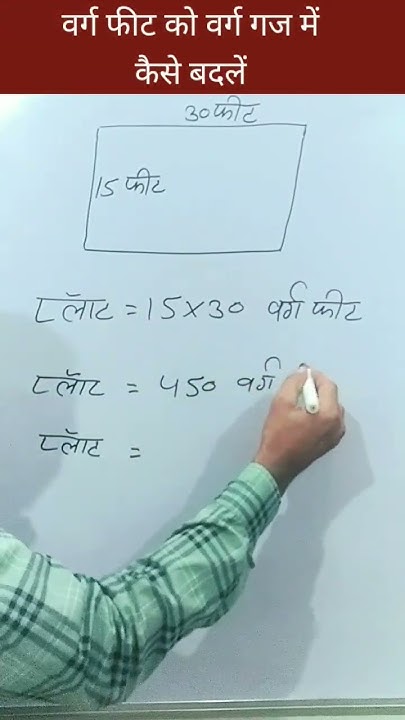 वर्ग फीट को वर्ग गज में
कैसे बदलें
30 फीट
15 फीट
प्लॉट = 15 × 30 वर्ग फीट
प्लॉट = 450 वर्ग
प्लॉट =